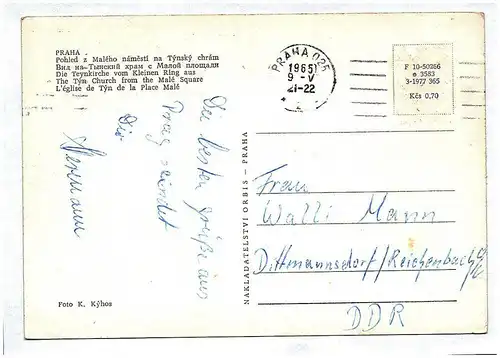 PRAHA
Pohled z Malého náměstí na Týnský chrám
Вид на Тынский храм с Малой площади
Die Teynkirche vom Kleinen Ring aus
The Týn Church from the Malé Square
L'église de Týn de la Place Malé
PRAHA 025
1965
9 –V
21-22
F 10-50266
e 3583
3-1977 365
Kčs 0,70
Die besten Grüße aus
Prag sendet
Dir
Hermann
NAKLADATELSTVÍ ORBIS – PRAHA
Frau
Walli Mann
Dittmannsdorf/Reichenbach
DDR
Foto K. Kýhos